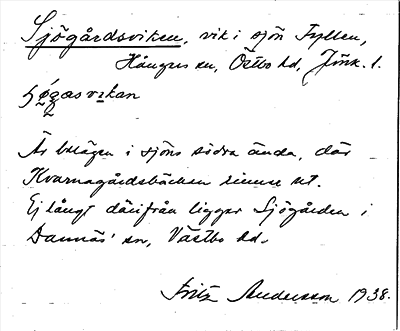 Sjögårdsviken, vik i sjön Fyllen,
Hångers sn, Östbo hd, Jönk. l.
Är belägen i sjöns södra ända, där
Kvarnagårdsbäcken rinner ut.
Ej långt därifrån ligger Sjögården i
Dannäs' sn, Västbo hd.
Fritz Andersson 1938.